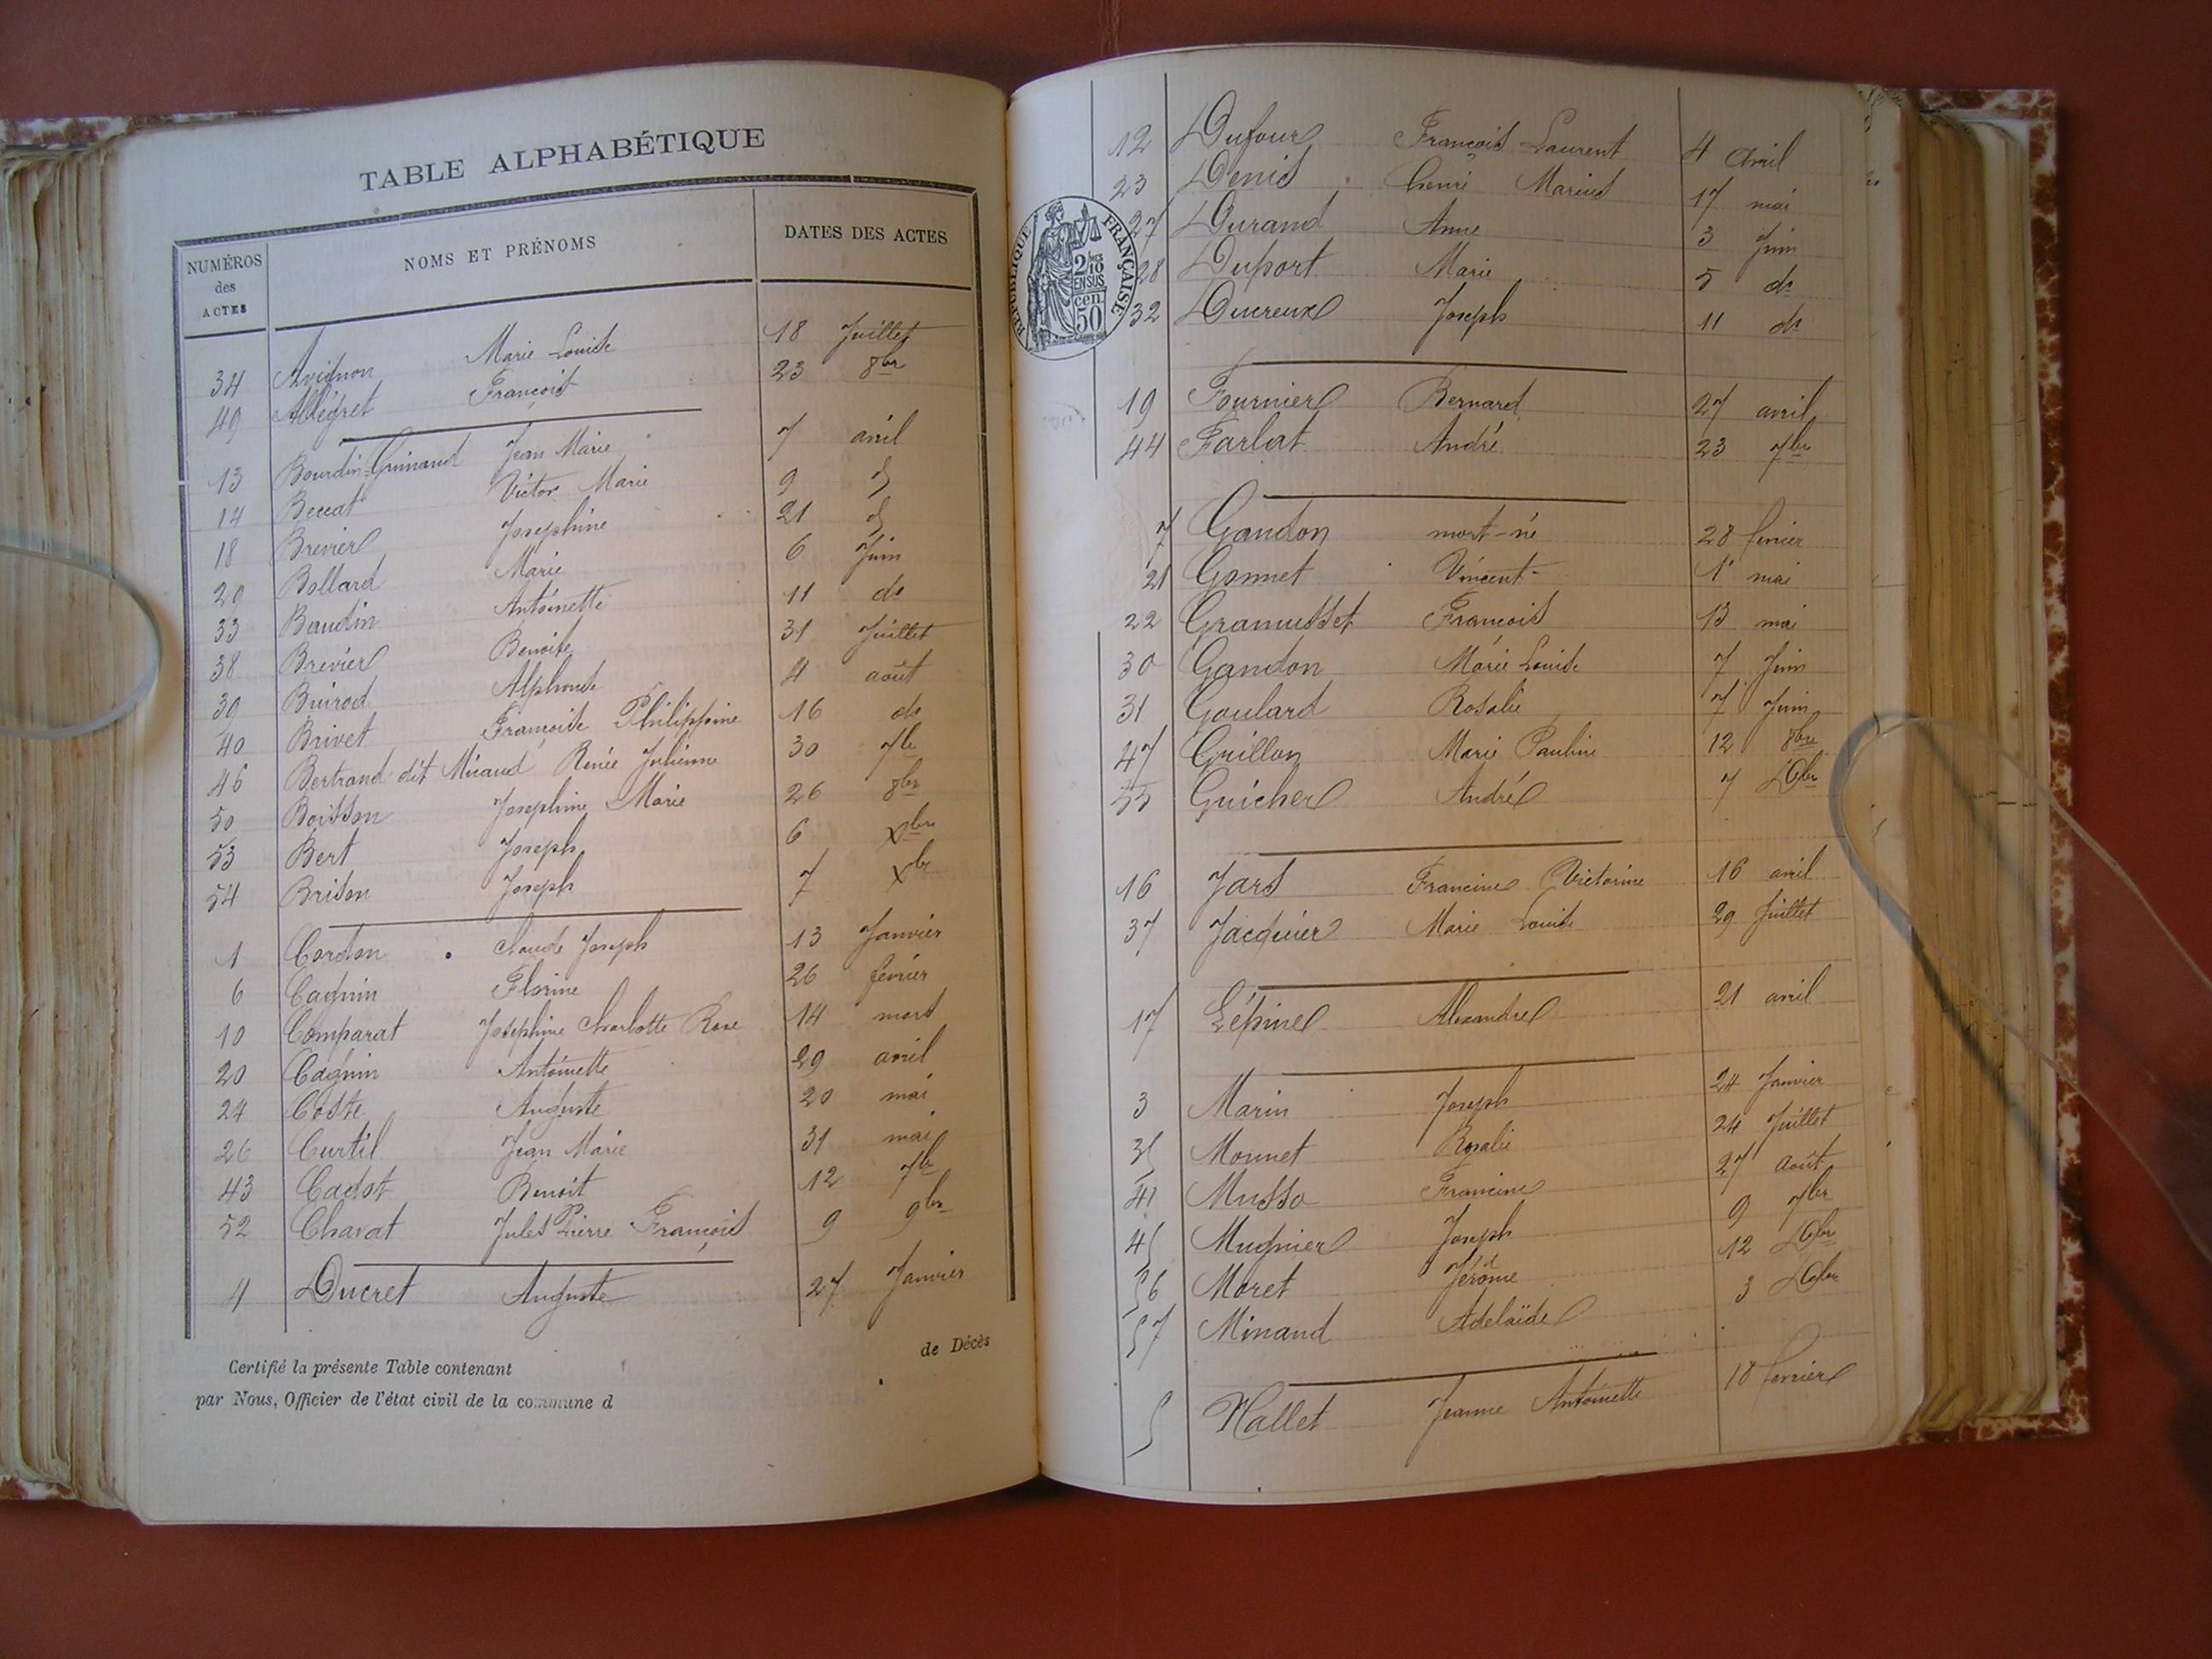 TABLE ALPHABÉTIQUE
NUMÉROS des ACTES NOMS ET PRÉNOMS DATES DES ACTES
34 Avignon Marie Louise 18 Juillet
49 Allégret François 23 8bre
13 Bourdin-Guinaud Jean Marie 7 avril
14 Beccat Victor Marie 9 d
18 Brevier Josephine 21 d
29 Bollard Marie 6 Juin
33 Baudin Antoinette 11 do
38 Brevier Benoite 31 Juillet
39 Buirod Alphonse 4 août
40 Brivet Françoise Philippine 16 do
46 Bertrand dit Micaud Rénée Julienne 30 7bre
50 Boisson Josephine Marie 26 8bre
53 Bert Joseph 6 Xbre
54 Brison Joseph 7 Xbre
1 Cordon Claude Joseph 13 Janvier
6 Cagnin Florine 26 février
10 Comparat Josephine Charlotte Rose 14 mars
20 Cagnin Antoinette 29 avril
24 Coste Auguste 20 mai
26 Curtil Jean Marie 31 mai
43 Cadot Benoit 12 7bre
52 Charat Jules Pierre François 9 9bre
4 Ducret Auguste 27 Janvier
de Décès
Certifié la présente Table contenant
par Nous, Officier de l'état civil de la commune d
12 Dufour François Laurent 4 avril
23 Denis henri Marius 17 mai
27 Durand Anne 3 Juin
28 Duport Marie 5 do
32 Ducreux Joseph 11 do
RÉPUBLIQUE FRANÇAISE
2/10 EN SUS
50 cen
19 Fournier Bernard 27 avril
44 Farlat André 23 7bre
7 Gandon mort-né 28 février
21 Gonnet Vincent 1r mai
22 Gramusset François 13 mai
30 Gandon Marie Louise 7 Juin
31 Goulard Rosalie 7 Juin
47 Guillon Marie Pauline 12 8bre
55 Guicher André 7 Dbre
16 Jars Francine Victorine 16 avril
37 Jacquier Marie Louise 29 Juillet
17 Lépine Alexandre 21 avril
3 Marin Joseph 24 Janvier
35 Monnet Rosalie 24 Juillet
41 Musso Francine 27 août
45 Mugnier Joseph 9 7bre
56 Moret Jérôme 12 Dbre
57 Minand Adelaïde 3 Dbre
5 Nallet Jeanne Antoinette 18 février